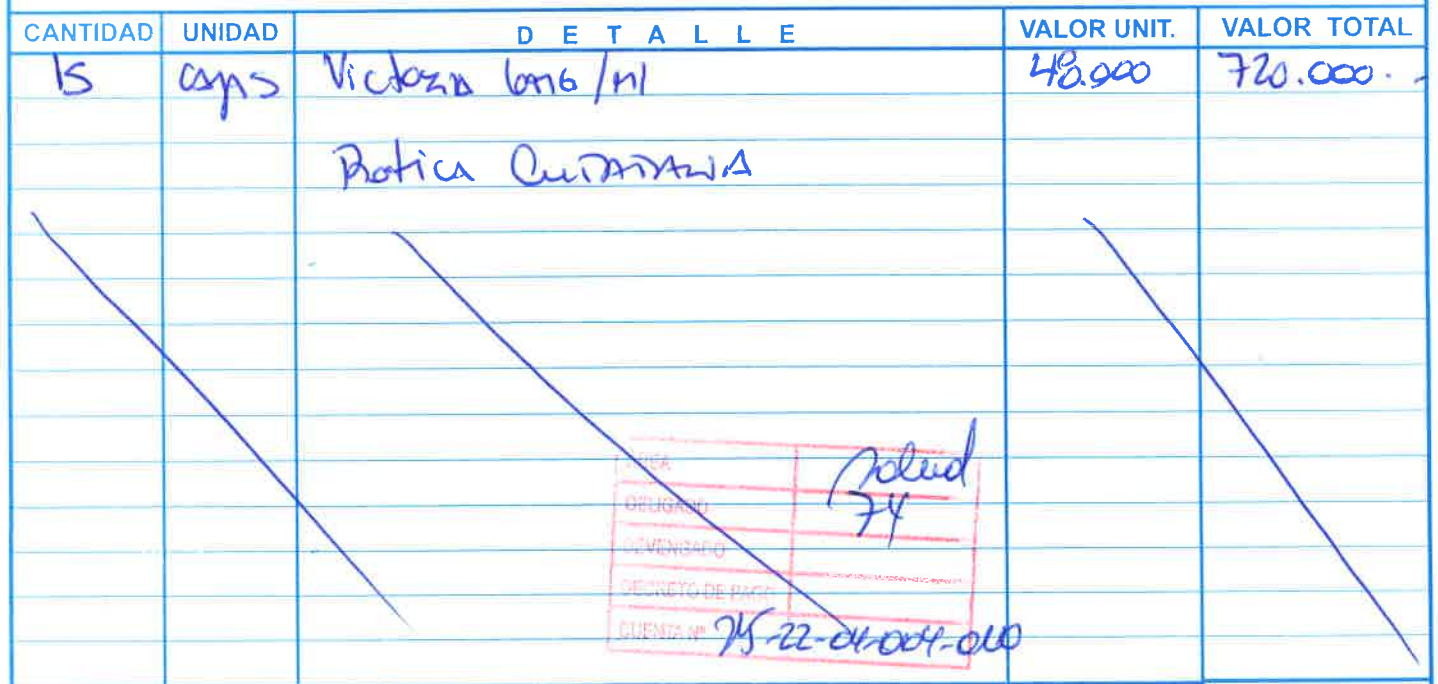 CANTIDAD UNIDAD DETALLE VALOR UNIT. VALOR TOTAL
15 cajas Victoza 6mg/ml 48.000 720.000.-
Botica Ciudadana
AREA Salud
OBLIGADO 74
DEVENGADO
DECRETO DE PAGO
CUENTA Nº 215-22-04-004-010